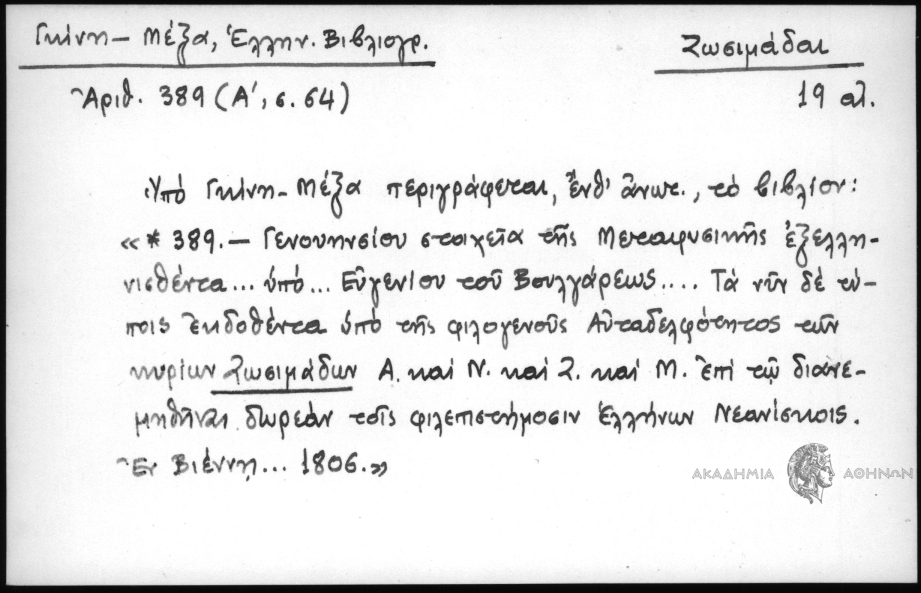 Γκίνη – Μέξα, Ἑλλην. Βιβλιογρ.
Ζωσιμάδαι
Ἀριθ. 389 (Α', σ. 64)
19 αἰ.
Ὑπό Γκίνη – Μέξα περιγράφεται, ἔνθ' ἄνωτ., τό βιβλίον:
«* 389. — Γενουηνσίου στοιχεῖα τῆς Μεταφυσικῆς ἐξελλη-
νισθέντα... ὑπό... Εὐγενίου τοῦ Βουλγάρεως.... Τά νῦν δέ τύ-
ποις ἐκδοθέντα ὑπό τῆς φιλογενοῦς Αὐταδελφότητος τῶν
κυρίων Ζωσιμάδων Α. καί Ν. καί Ζ. καί Μ. ἐπί τῷ διανε-
μηθῆναι δωρεάν τοῖς φιλεπιστήμοσιν Ἑλλήνων Νεανίσκοις.
Ἐν Βιέννῃ... 1806.»
ΑΚΑΔΗΜΙΑ ΑΘΗΝΩΝ